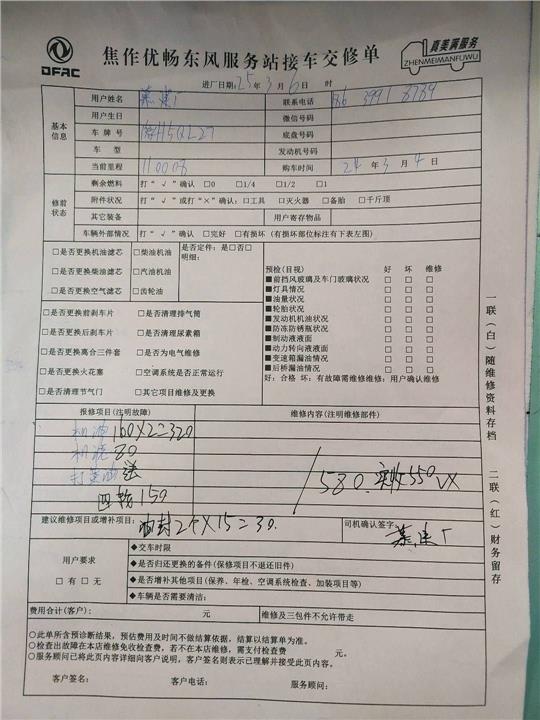 DFAC
焦作优畅东风服务站接车交修单
真美满服务
ZHENMEIMANFUWU
进厂日期:25年3月6日 时
基本信息
用户姓名 联系电话
用户生日 微信号码
车 牌 号 底盘号码
车 型 发动机号码
当前里程 110008 购车时间 24年3月4日
修前状态
剩余燃料 打“√”确认 □0 □1/4 □1/2 □1
附件状况 打“√”或打“×”确认:□工具 □灭火器 □备胎 □千斤顶
其它装备 用户寄存物品
车辆外部情况 打“√”确认 □完好 □有损坏 (有损坏部位标注有下表左图)
□是否更换机油滤芯 □柴油机油
□是否更换柴油滤芯 □汽油机油
□是否更换空气滤芯 □齿轮油
是否定件: 是□否□
明细:
□是否更换前刹车片 □是否清理排气筒
□是否更换后刹车片 □是否清理尿素箱
□是否更换离合三件套 □是否为电气维修
□是否更换火花塞 □空调系统是否正常运行
□是否清理节气门 □其它项目维修及更换
预检(目视) 好 坏 维修
■前挡风玻璃及车门玻璃状况 □ □ □
■灯具情况 □ □ □
■油量状况 □ □ □
■轮胎状况 □ □ □
■发动机机油状况 □ □ □
■防冻防锈瓶状况 □ □ □
■制动液液面 □ □ □
■动力转向液液面 □ □ □
■变速箱漏油情况 □ □ □
■后桥漏油情况 □ □ □
好:合格 坏:有故障需维修维修:用户确认维修
报修项目(注明故障) 维修内容(注明维修部件)
机油 160X2=320
机滤 80
打黄油 送
四轮 150
580. 实收550 VX
建议维修项目或增补项目: 油封2个X15=30.
司机确认签字:
用户要求
□有 □无
◆交车时限
◆是否归还更换的备件(保修项目不退还旧件)
◆是否增补其他项目(保养、年检、空调系统检查、加装项目等)
◆车辆是否需要清洁:
费用合计(客户): 元 维修及三包件不允许带走
○此单所含预诊断结果,预估费用及时间不做结算依据,结算以结算单为准。
○检查出故障在本店维修免收检查费,若不在本店维修,需支付检查费 元。
○服务顾问已将此页内容详细向客户说明,客户签名则表示已理解并接受此页内容。
客户签名: 客户电话: 服务顾问:
一联(白)随维修资料存档
二联(红)财务留存